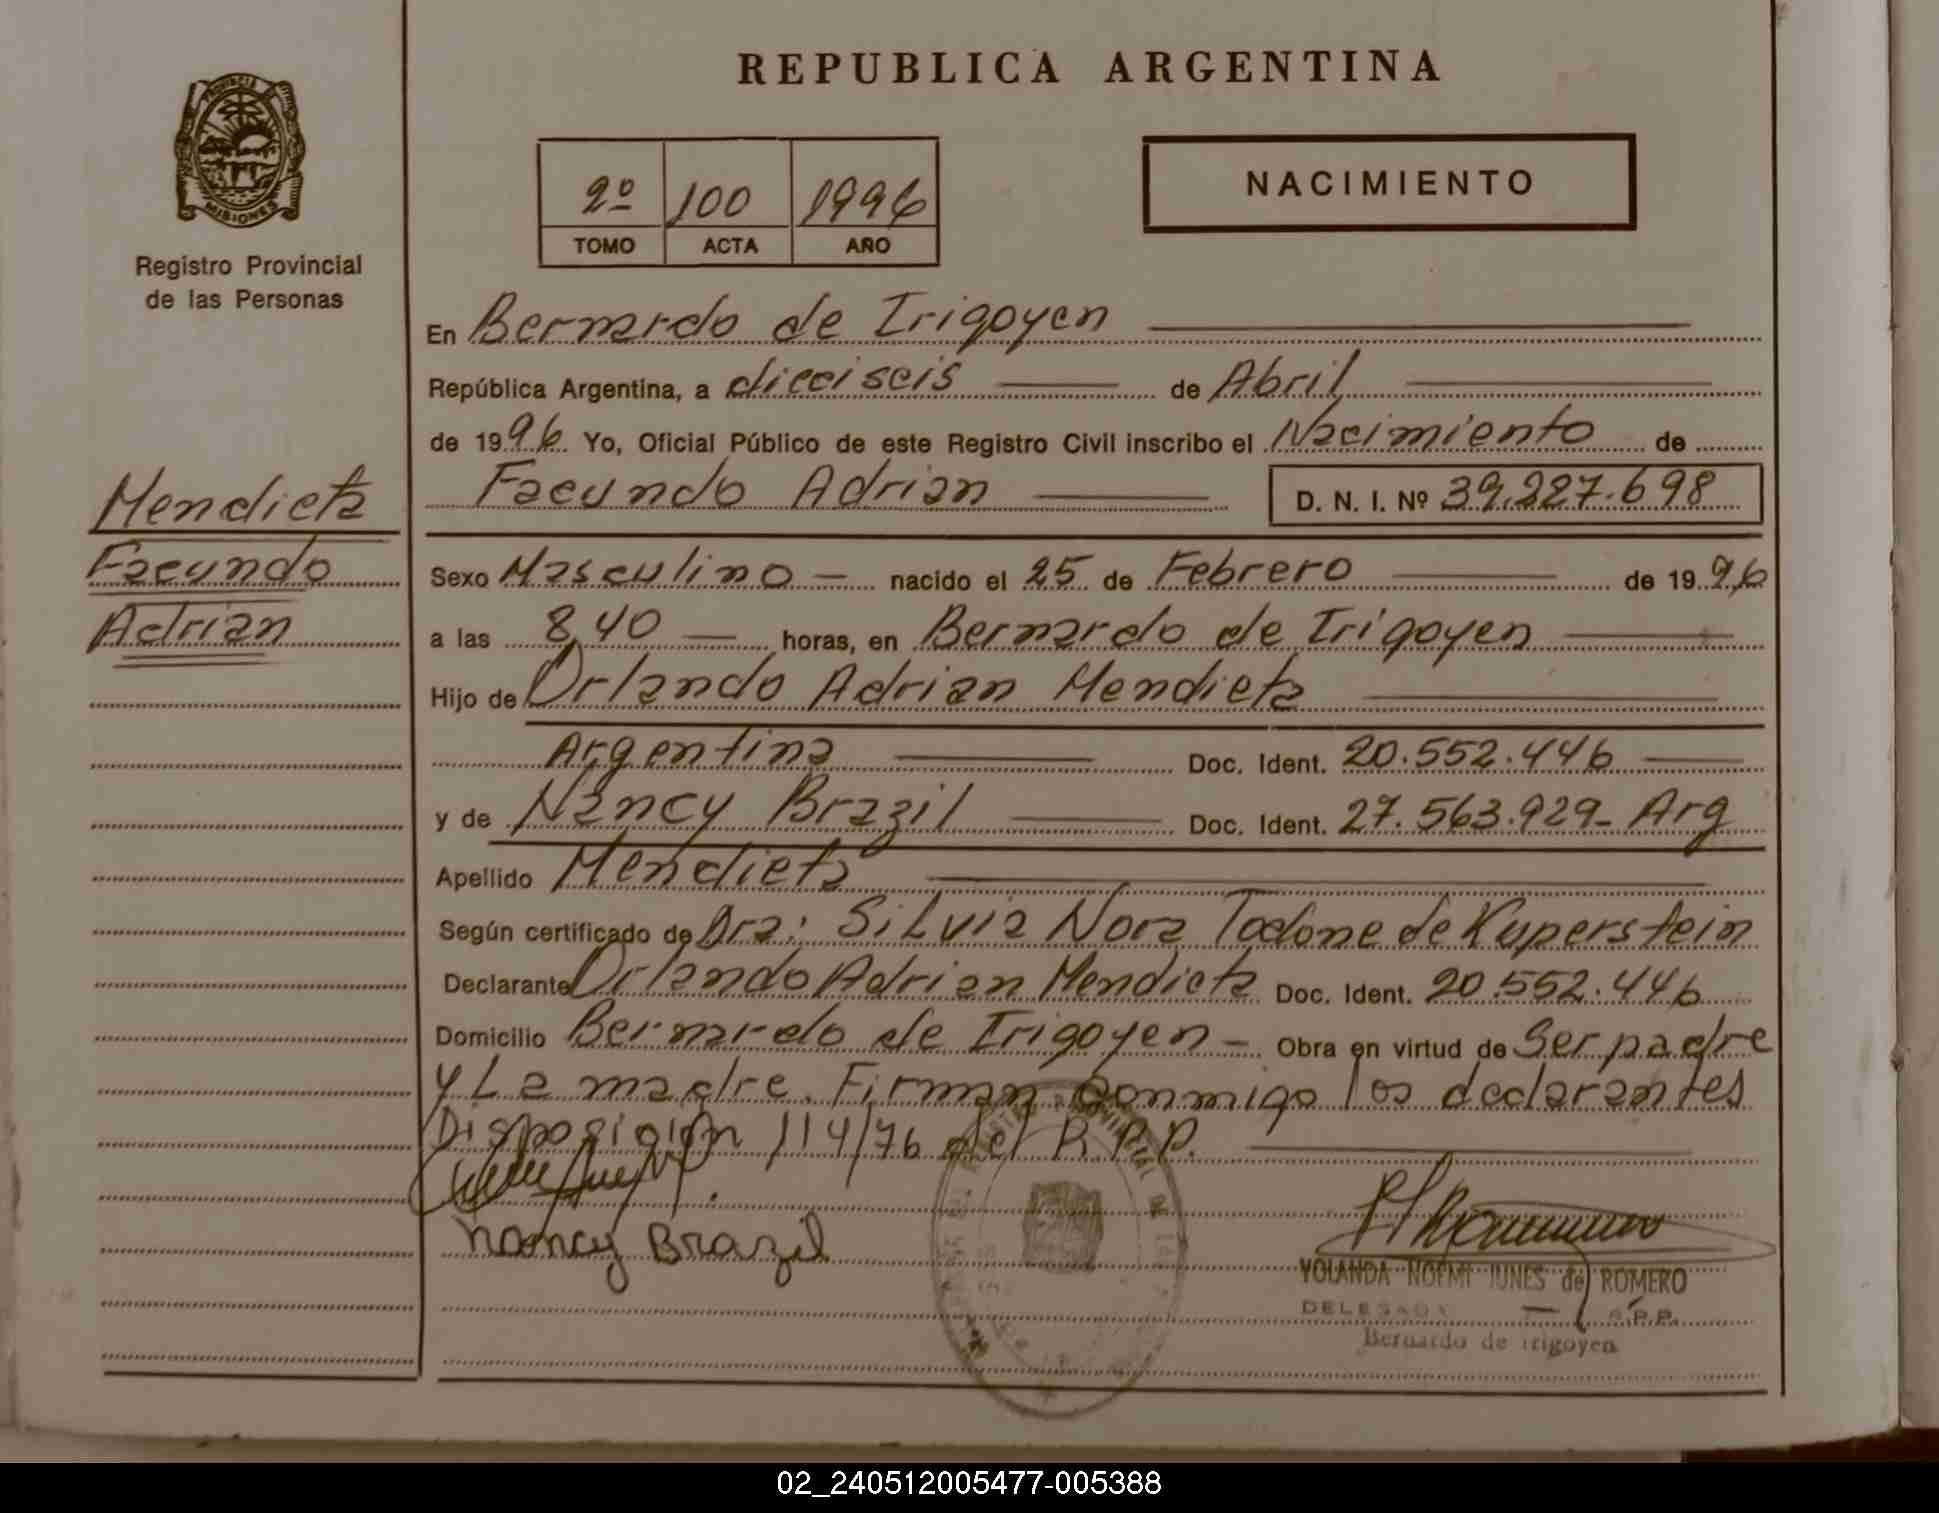 REPUBLICA ARGENTINA
PROVINCIA DE
MISIONES
Registro Provincial
de las Personas
2º 100 1996
TOMO ACTA AÑO
NACIMIENTO
En Bernardo de Irigoyen
República Argentina, a dieciseis de Abril
de 1996. Yo, Oficial Público de este Registro Civil inscribo el Nacimiento de
Facundo Adrian D. N. I. Nº 39.227.698
Mendieta
Facundo
Adrian
Sexo Masculino nacido el 25 de Febrero de 1996
a las 8,40 horas, en Bernardo de Irigoyen
Hijo de Orlando Adrian Mendieta
Argentina Doc. Ident. 20.552.446
y de Nancy Brazil Doc. Ident. 27.563.929- Arg
Apellido Mendieta
Según certificado de Dra: Silvia Nora Todone de Kuperstein
Declarante Orlando Adrian Mendieta Doc. Ident. 20.552.446
Domicilio Bernardo de Irigoyen - Obra en virtud de Ser padre
y La madre. Firman conmigo los declarantes
Disposición 114/76 del R.P.P.
Nancy Brazil
YOLANDA NOEMI JUNES de ROMERO
DELEGADA R.P.P.
Bernardo de Irigoyen
02_240512005477-005388